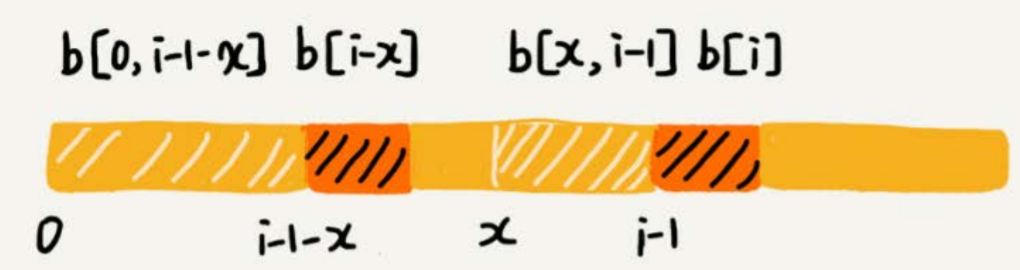 b[0, i-1-x] b[i-x] b[x, i-1] b[i]
0 i-1-x x i-1